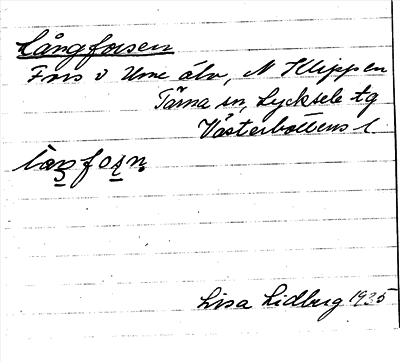 Långforsen
Fors v Ume älv, N Klippen
Tärna sn, Lycksele tg
Västerbottens l
Lisa Lidberg 1935